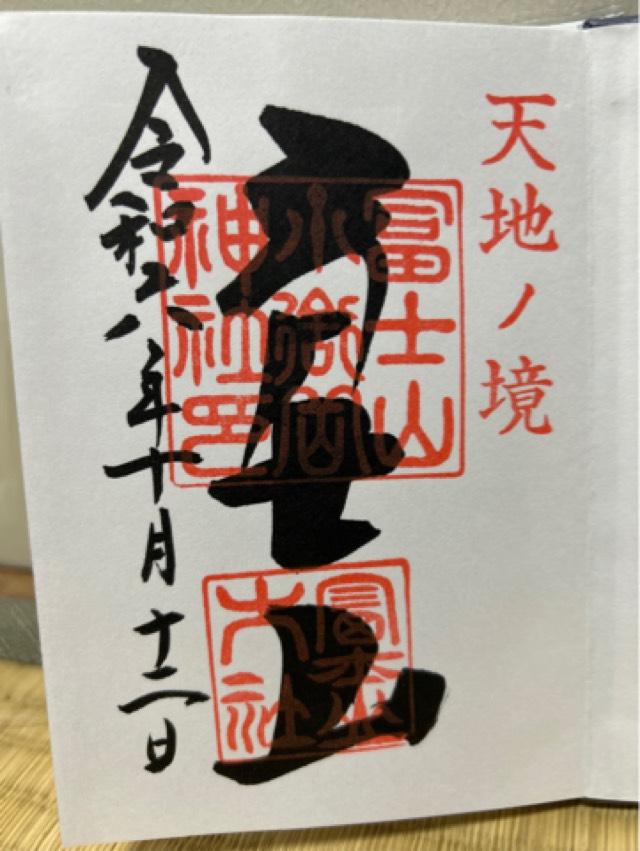 天地ノ境
富士山
小御嶽
神社印
令和六年十月十二日